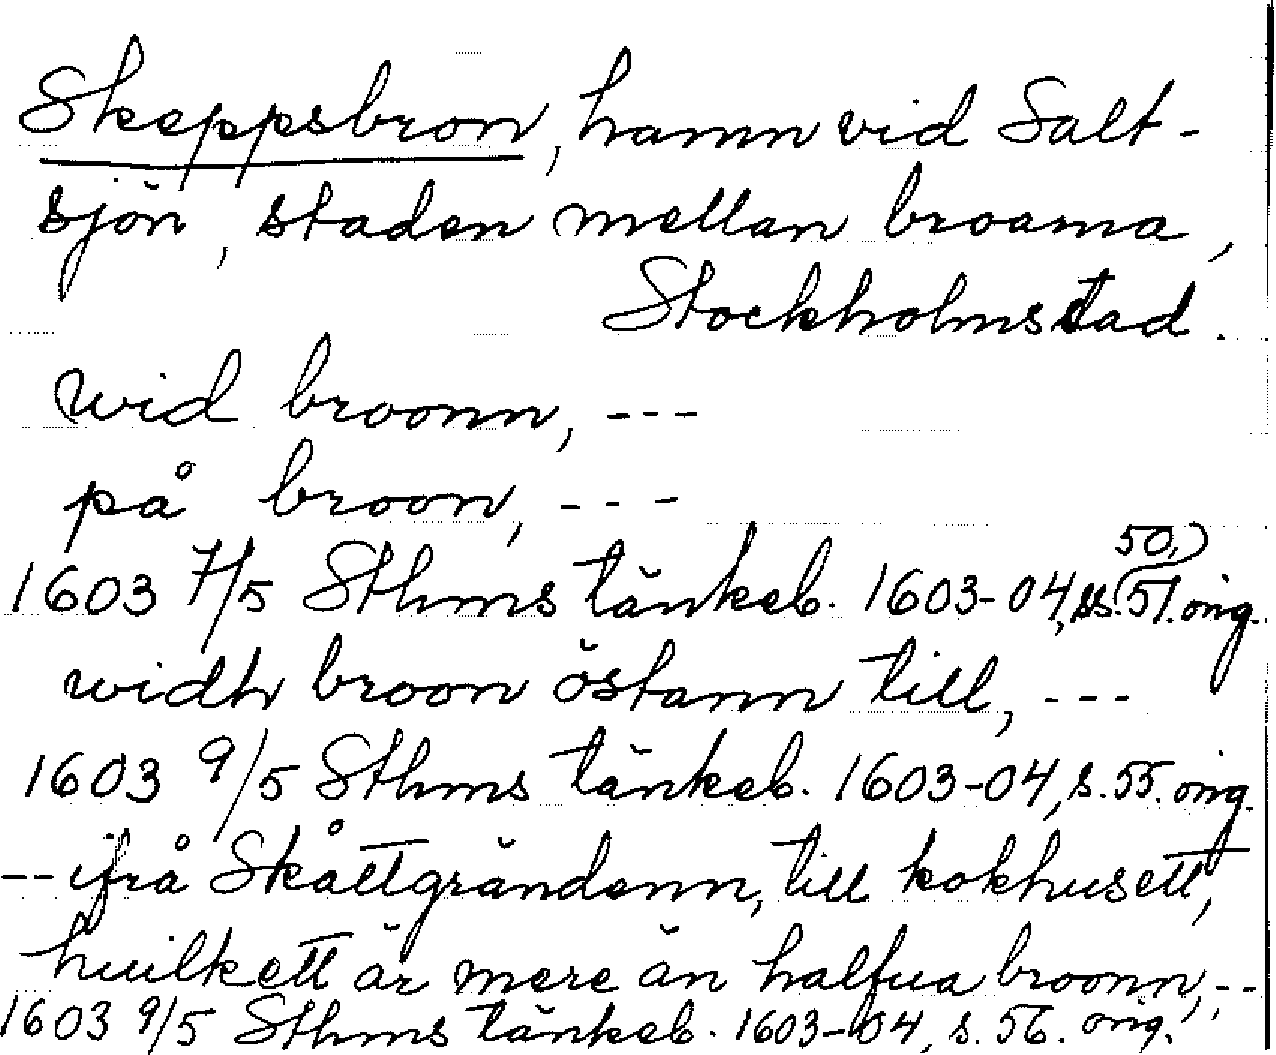 Skeppsbron, hamn vid Salt-
sjön, staden mellan broarna,
Stockholms stad.
wid broonn, ---
på broon, ---
50,)
1603 7/5 Sthms tänkeb. 1603-04, ss. 51. orig.
widh broon östann till, ---
1603 9/5 Sthms tänkeb. 1603-04, s. 55. orig.
-- ifrå Skåttgrändenn, till kokhusett,
huilkett är mere än halfua broonn, --
1603 9/5 Sthms tänkeb. 1603-04, s. 56. orig.